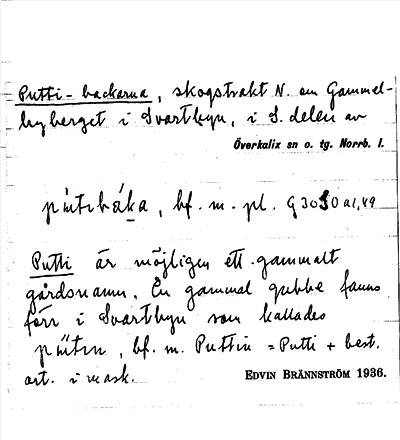 Putti-backarna, skogstrakt N. om Gammel-
byberget i Svartbyn, i S. delen av
Överkalix sn o. tg. Norrb. l.
bf. m. pl.
Putti är möjligen ett gammalt
gårdsnamn. En gammal gubbe fanns
förr i Svartbyn som kallades
bf. m. Puttin = Putti + best.
art. i mask.
EDVIN BRÄNNSTRÖM 1936.